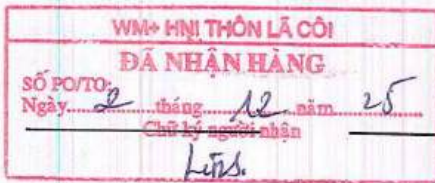 WM+ HNI THÔN LÃ CÔI
ĐÃ NHẬN HÀNG
SỐ PO/TO:
Ngày 2 tháng 12 năm 25
Chữ ký người nhận